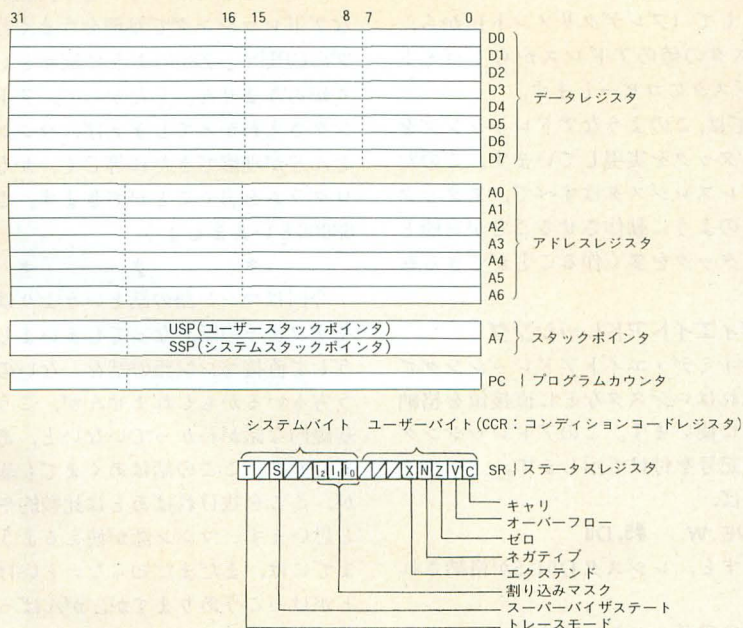 31 16 15 8 7 0
D0
D1
D2
D3
D4
D5
D6
D7
データレジスタ
A0
A1
A2
A3
A4
A5
A6
アドレスレジスタ
USP(ユーザースタックポインタ)
SSP(システムスタックポインタ)
A7
スタックポインタ
PC
プログラムカウンタ
システムバイト ユーザーバイト(CCR:コンディションコードレジスタ)
T S I2 I1 I0 X N Z V C
SR
ステータスレジスタ
キャリ
オーバーフロー
ゼロ
ネガティブ
エクステンド
割り込みマスク
スーパーバイザステート
トレースモード